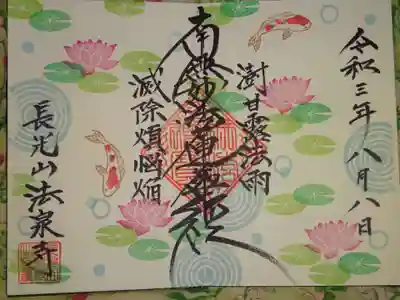 令和三年 八月八日
澍甘露法雨
南無妙法蓮華経
滅除煩悩焔
長光山 法泉寺